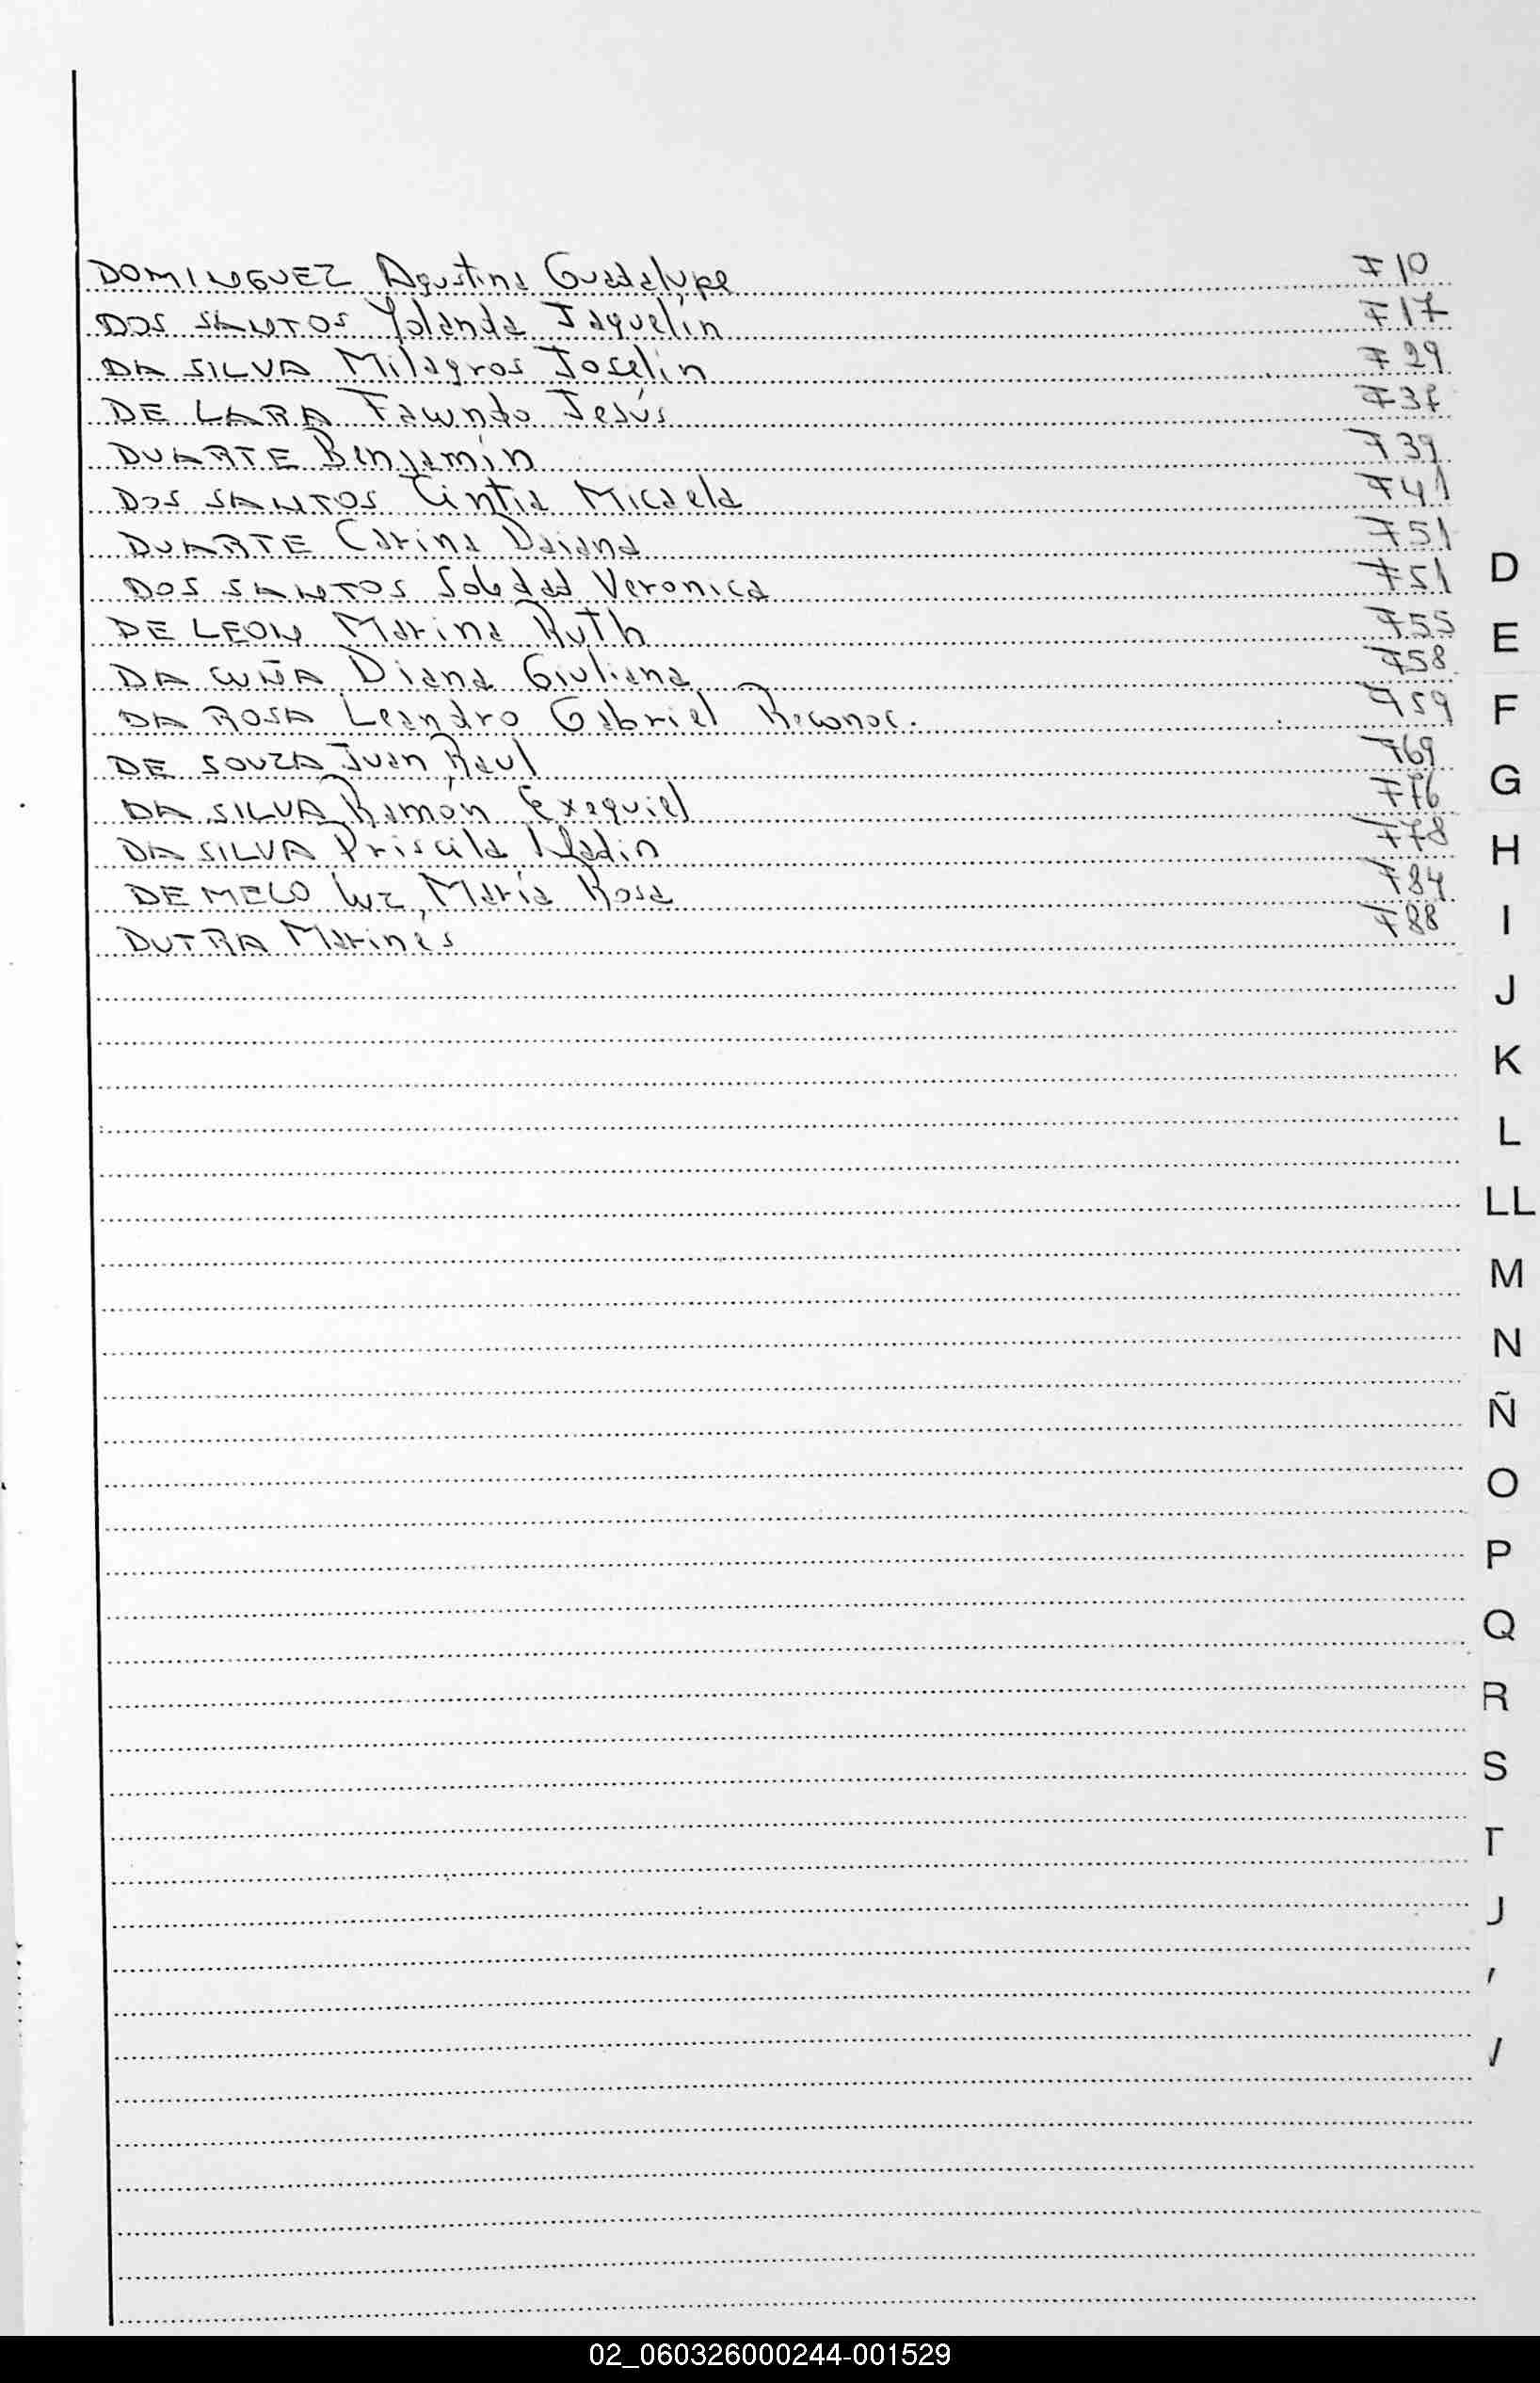 DOMINGUEZ Agustina Guadalupe F10
DOS SANTOS Yolanda Jaquelín F17
DA SILVA Milagros Joselín F29
DE LARA Facundo Jesús F37
DUARTE Benjamín F39
DOS SANTOS Cintia Micaela F41
DUARTE Carina Daiana F51
DOS SANTOS Soledad Veronica F51
DE LEON Marina Ruth F55
DA CUÑA Diana Giuliana F58
DA ROSA Leandro Gabriel Reconoc. F59
DE SOUZA Juan Raul F69
DA SILVA Ramón Exequiel F76
DA SILVA Priscila F78
DE MELO Luz María Rosa F84
DUTRA Marinés F88
D
E
F
G
H
I
J
K
L
LL
M
N
Ñ
O
P
Q
R
S
T
02_060326000244-001529